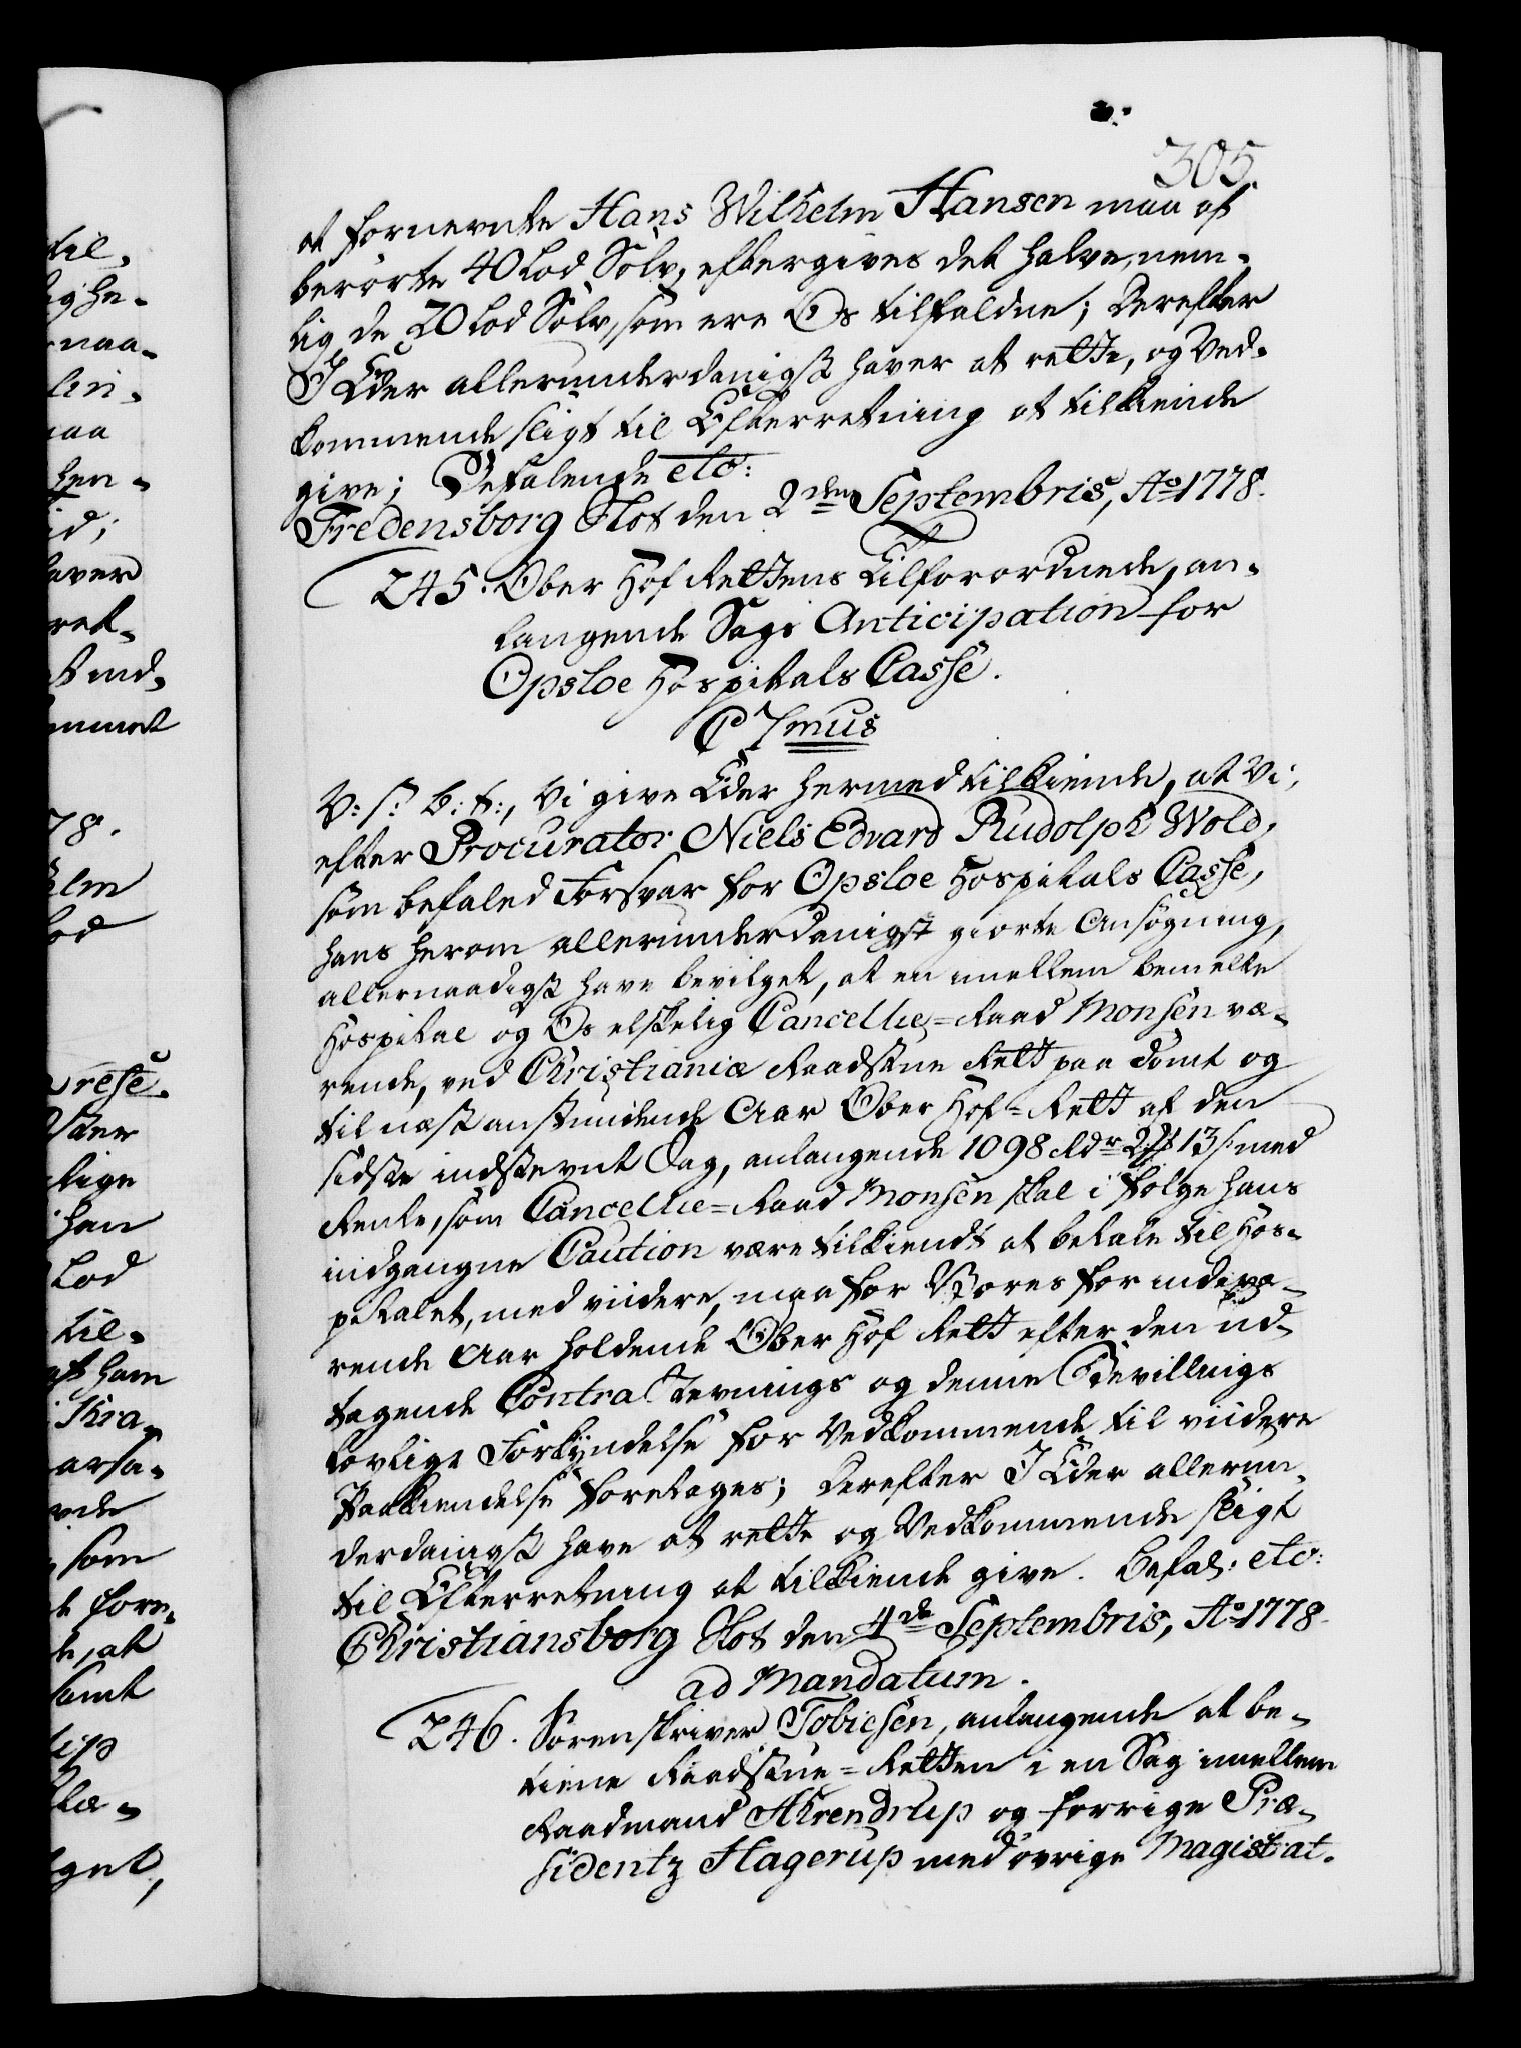 305.
at fornevnte Hans Wilhelm Hansen maa af
berørte 40 Lod Sølv, eftergives det halve, nem-
lig de 20 Lod Sølv, som ere Os tilfaldne; Derefter
I Eder allerunderdanigst haver at rette, og Ved-
kommende sligt til Efterretning at tilkiende
give; Befalende etc:
Fredensborg Slot den 2den Septembris, Ao 1778.
245. Ober Hof Rettens Tilforordnede, an-
langende Sags Anticipation for
Opsloe Hospitals Casse.
C 7mus
V: S: B: t:, Vi give Eder hermed tilkiende, at Vi,
efter Procurator Niels Edvard Rudolph Wold,
som befaled Forsvar for Opsloe Hospitals Casse,
hans herom allerunderdanigst giorte Ansøgning,
allernaadigst have bevilget, at en imellem bemelte
Hospital og Os elskelig Cancellie-Raad Monsen væ-
rende, ved Christianiæ Raadstue Rett paa Dømt og
til næst anstundende Aar Ober Hof-Rett af den
sidste indstevnt Sag, anlangende 1098 Rdr 2 13 s: med
Rente, som Cancellie-Raad Monsen skal i følge hans
indgangne Caution være tilkiendt at betale til Hos-
pitalet, med viidere, maa for Vores for indevæ-
rende Aar holdende Ober Hof Rett efter den ud-
tagende Contra Stevnings og denne Bevillings
lovlige Forkyndelse for Vedkommende til viidere
Paakiendelse foretages; Derefter I Eder allerun-
derdanigst have at rette og Vedkommende sligt
til Efterretning at tilkiende give. Befal: etc:
Christiansborg Slot den 4de Septembris, Ao 1778.
ad Mandatum.
246. Sorenskriver Tobiesen, anlangende at be-
tiene Raadstue-Retten i en Sag imellem
Raadmand Ahrendrup og forrige Præ-
sidentz Hagerup med øvrige Magistrat.